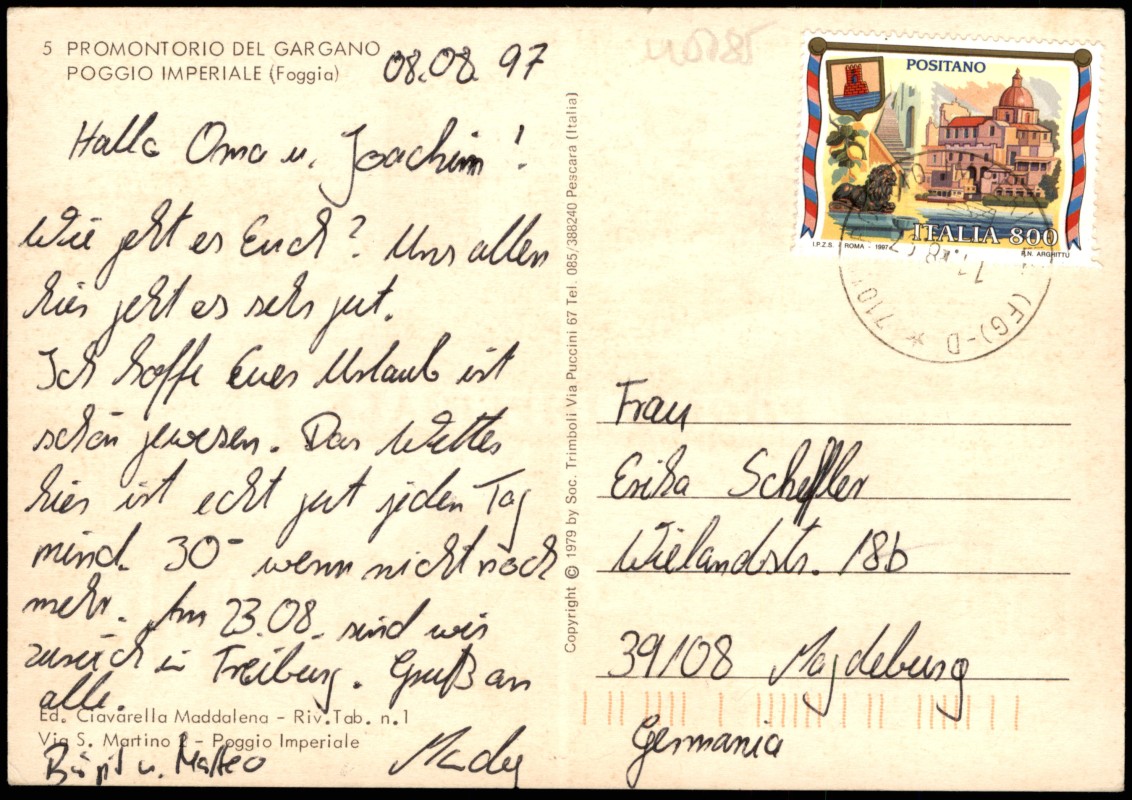 5 PROMONTORIO DEL GARGANO
POGGIO IMPERIALE (Foggia)
08.08.97
Hallo Oma u. Joachim!
Wie geht es Euch? Uns allen
hier geht es sehr gut.
Ich hoffe Euer Urlaub ist
schön gewesen. Das Wetter
hier ist echt gut jeden Tag
mind. 30° wenn nicht noch
mehr. Am 23.08. sind wir
zurück in Freiburg. Gruß an
alle.
Ed. Ciavarella Maddalena - Riv. Tab. n.1
Via S. Martino 2 - Poggio Imperiale
Birgit u. Matteo
Copyright © 1979 by Soc. Trimboli Via Puccini 67 Tel. 085/388240 Pescara (Italia)
POSITANO
ITALIA 800
I.P.Z.S. ROMA - 1997
R.N. ARGHITTU
(FG)-D * 710
Frau
Erika Scheffler
Wielandstr. 18b
39108 Magdeburg
Germania